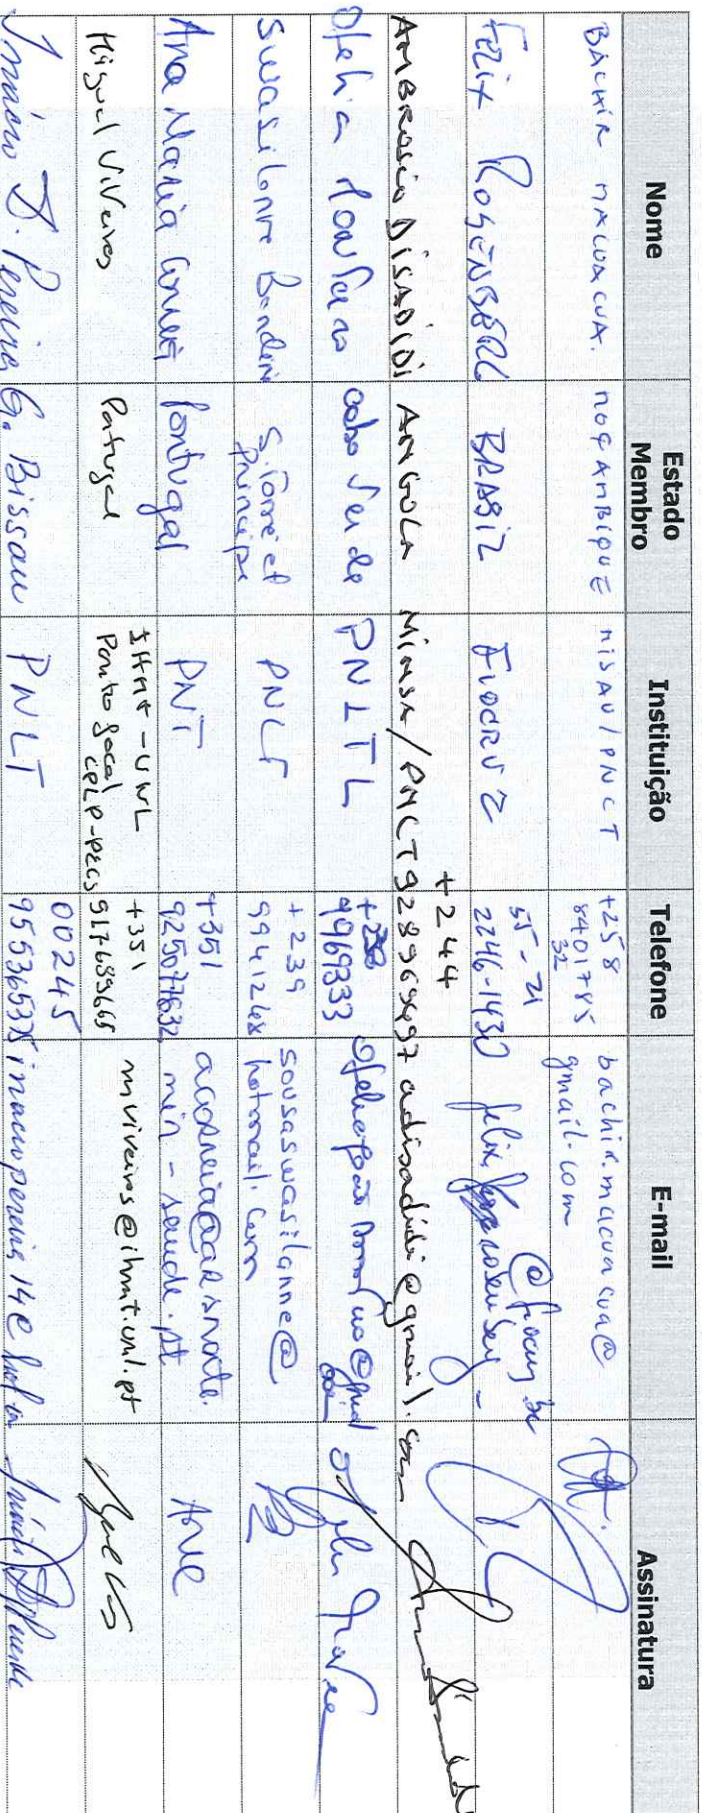 Nome Estado Membro Instituição Telefone E-mail Assinatura
BACHIR MACUACUA. MOÇAMBIQUE MISAU/PNCT +258 8401785 32 bachir.macuacua@ gmail.com
Felix ROSENBERG BRASIL FIOCRUZ 55-21 2246-1430 felix @fiocruz.br
AMBROSIO DISADIDI ANGOLA MINSA/PNCT +244 928969697 adisadidi@gmail.com
Ofelia Cabo Verde PNLTL 9969333
Swasilanne Bandeira S. Tomé et Principe PNLT +239 9941248 sousaswasilanne@ hotmail.com
Ana Maria Correia Portugal PNT +351 925077632 acorreia@arsnorte. min-saude.pt Ane
Miguel Viveiros Portugal IHMT-UNL Ponto focal CPLP-PECS +351 917689665 mviveiros@ihmt.unl.pt
Inácio J. Pereira G. Bissau PNLT 00245 955365375